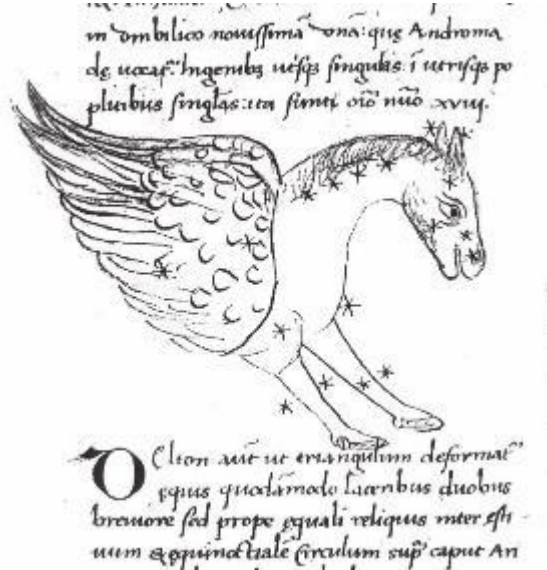 in vmbilico nouissimā vnā: quę Androma
dę uocat᷑. Ingenibꝫ utrisqꝫ singulas: ī utrisqꝫ po
plitibus singlas: ita sunt oīo nūo xviij.
DEltton aūt ut triangulum deformat᷑
ęquis quodāmodo lateribus duobus
breuiore sed prope ęquali reliquis inter ęsti
uum & ęquinoctialē circulum sup̄ caput An